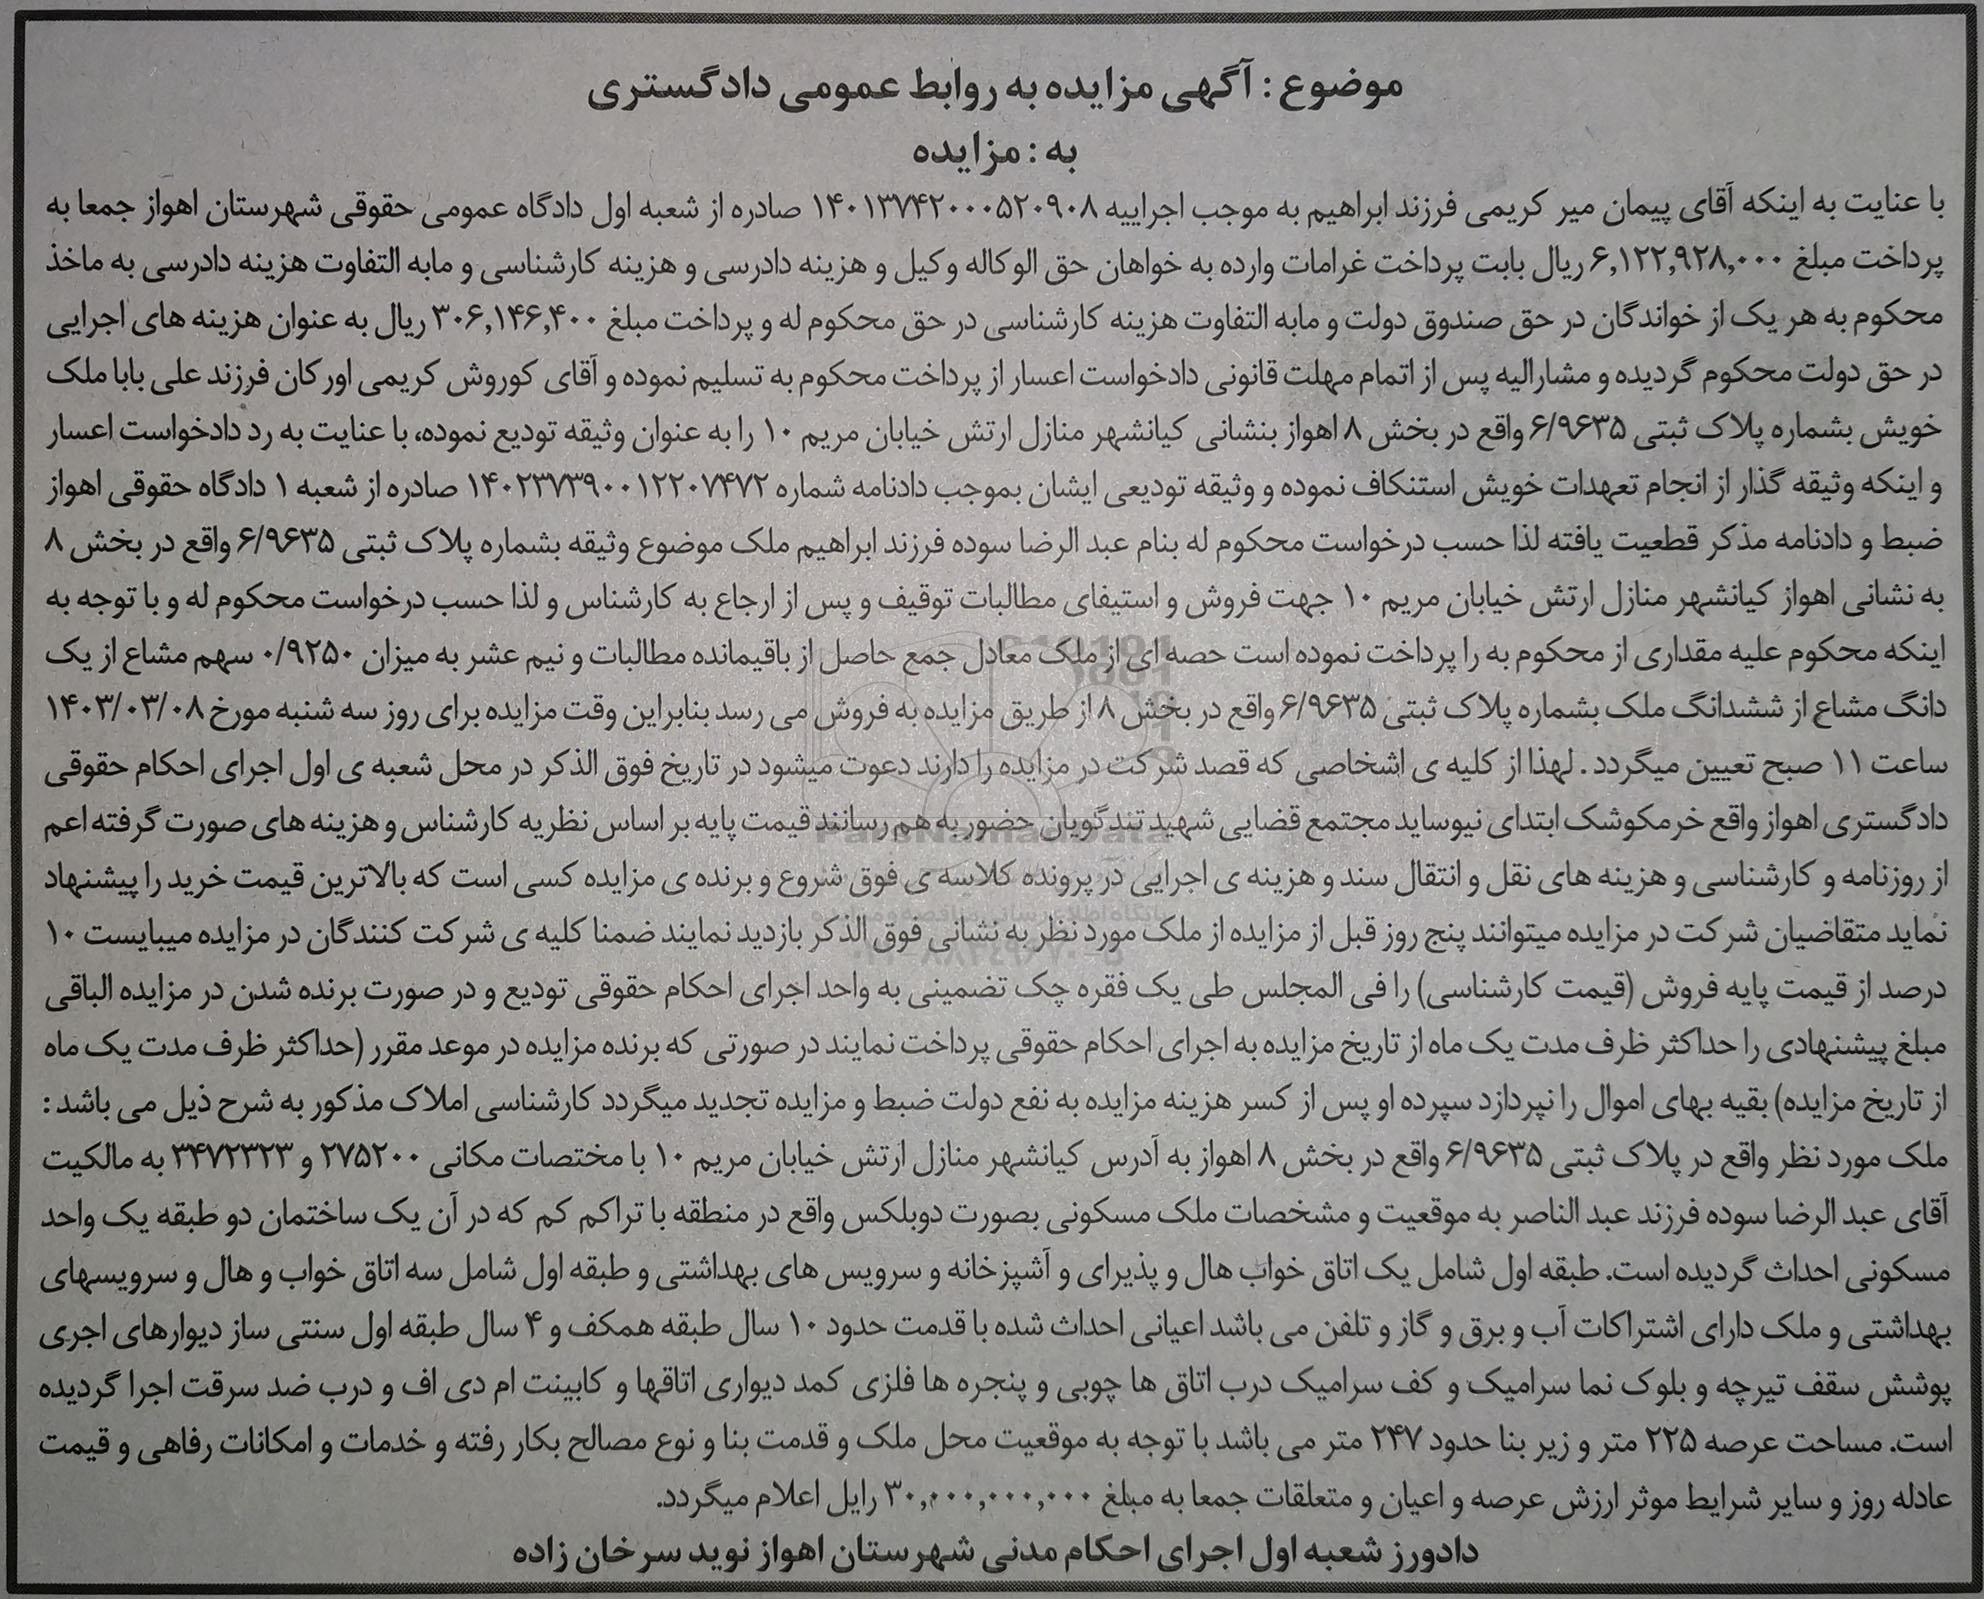 موضوع : آگهی مزایده به روابط عمومی دادگستری
به : مزایده
با عنایت به اینکه آقای پیمان میر کریمی فرزند ابراهیم به موجب اجراییه ۱۴۰۱۳۷۴۲۰۰۰۵۲۰۹۰۸ صادره از شعبه اول دادگاه عمومی حقوقی شهرستان اهواز جمعا به
پرداخت مبلغ ۶,۱۲۲,۹۲۸,۰۰۰ ریال بابت پرداخت غرامات وارده به خواهان حق الوکاله وکیل و هزینه دادرسی و هزینه کارشناسی و مابه التفاوت هزینه دادرسی به ماخذ
محکوم به هر یک از خواندگان در حق صندوق دولت و مابه التفاوت هزینه کارشناسی در حق محکوم له و پرداخت مبلغ ۳۰۶,۱۴۶,۴۰۰ ریال به عنوان هزینه های اجرایی
در حق دولت محکوم گردیده و مشارالیه پس از اتمام مهلت قانونی دادخواست اعسار از پرداخت محکوم به تسلیم نموده و آقای کوروش کریمی اورکان فرزند علی بابا ملک
خویش بشماره پلاک ثبتی ۶/۹۶۳۵ واقع در بخش ۸ اهواز بنشانی کیانشهر منازل ارتش خیابان مریم ۱۰ را به عنوان وثیقه تودیع نموده، با عنایت به رد دادخواست اعسار
و اینکه وثیقه گذار از انجام تعهدات خویش استنکاف نموده و وثیقه تودیعی ایشان بموجب دادنامه شماره ۱۴۰۲۳۷۳۹۰۰۱۲۲۰۷۴۷۲ صادره از شعبه ۱ دادگاه حقوقی اهواز
ضبط و دادنامه مذکر قطعیت یافته لذا حسب درخواست محکوم له بنام عبد الرضا سوده فرزند ابراهیم ملک موضوع وثیقه بشماره پلاک ثبتی ۶/۹۶۳۵ واقع در بخش ۸
به نشانی اهواز کیانشهر منازل ارتش خیابان مریم ۱۰ جهت فروش و استیفای مطالبات توقیف و پس از ارجاع به کارشناس و لذا حسب درخواست محکوم له و با توجه به
اینکه محکوم علیه مقداری از محکوم به را پرداخت نموده است حصه ای از ملک معادل جمع حاصل از باقیمانده مطالبات و نیم عشر به میزان ۰/۹۲۵۰ سهم مشاع از یک
دانگ مشاع از ششدانگ ملک بشماره پلاک ثبتی ۶/۹۶۳۵ واقع در بخش ۸ از طریق مزایده به فروش می رسد بنابراین وقت مزایده برای روز سه شنبه مورخ ۱۴۰۳/۰۳/۰۸
ساعت ۱۱ صبح تعیین میگردد . لهذا از کلیه ی اشخاصی که قصد شرکت در مزایده را دارند دعوت میشود در تاریخ فوق الذکر در محل شعبه ی اول اجرای احکام حقوقی
دادگستری اهواز واقع خرمکوشک ابتدای نیوساید مجتمع قضایی شهید تندگویان حضور به هم رسانند قیمت پایه بر اساس نظریه کارشناس و هزینه های صورت گرفته اعم
از روزنامه و کارشناسی و هزینه های نقل و انتقال سند و هزینه ی اجرایی در پرونده کلاسه ی فوق شروع و برنده ی مزایده کسی است که بالاترین قیمت خرید را پیشنهاد
نماید متقاضیان شرکت در مزایده میتوانند پنج روز قبل از مزایده از ملک مورد نظر به نشانی فوق الذکر بازدید نمایند ضمنا کلیه ی شرکت کنندگان در مزایده میبایست ۱۰
درصد از قیمت پایه فروش (قیمت کارشناسی) را فی المجلس طی یک فقره چک تضمینی به واحد اجرای احکام حقوقی تودیع و در صورت برنده شدن در مزایده الباقی
مبلغ پیشنهادی را حداکثر ظرف مدت یک ماه از تاریخ مزایده به اجرای احکام حقوقی پرداخت نمایند در صورتی که برنده مزایده در موعد مقرر (حداکثر ظرف مدت یک ماه
از تاریخ مزایده) بقیه بهای اموال را نپردازد سپرده او پس از کسر هزینه مزایده به نفع دولت ضبط و مزایده تجدید میگردد کارشناسی املاک مذکور به شرح ذیل می باشد :
ملک مورد نظر واقع در پلاک ثبتی ۶/۹۶۳۵ واقع در بخش ۸ اهواز به آدرس کیانشهر منازل ارتش خیابان مریم ۱۰ با مختصات مکانی ۲۷۵۲۰۰ و ۳۴۷۲۳۲۳ به مالکیت
آقای عبد الرضا سوده فرزند عبد الناصر به موقعیت و مشخصات ملک مسکونی بصورت دوبلکس واقع در منطقه با تراکم کم که در آن یک ساختمان دو طبقه یک واحد
مسکونی احداث گردیده است. طبقه اول شامل یک اتاق خواب هال و پذیرای و آشپزخانه و سرویس های بهداشتی و طبقه اول شامل سه اتاق خواب و هال و سرویسهای
بهداشتی و ملک دارای اشتراکات آب و برق و گاز و تلفن می باشد اعیانی احداث شده با قدمت حدود ۱۰ سال طبقه همکف و ۴ سال طبقه اول سنتی ساز دیوارهای اجری
پوشش سقف تیرچه و بلوک نما سرامیک و کف سرامیک درب اتاق ها چوبی و پنجره ها فلزی کمد دیواری اتاقها و کابینت ام دی اف و درب ضد سرقت اجرا گردیده
است. مساحت عرصه ۲۲۵ متر و زیر بنا حدود ۲۴۷ متر می باشد با توجه به موقعیت محل ملک و قدمت بنا و نوع مصالح بکار رفته و خدمات و امکانات رفاهی و قیمت
عادله روز و سایر شرایط موثر ارزش عرصه و اعیان و متعلقات جمعا به مبلغ ۳۰,۰۰۰,۰۰۰,۰۰۰ رایل اعلام میگردد.
دادورز شعبه اول اجرای احکام مدنی شهرستان اهواز نوید سرخان زاده